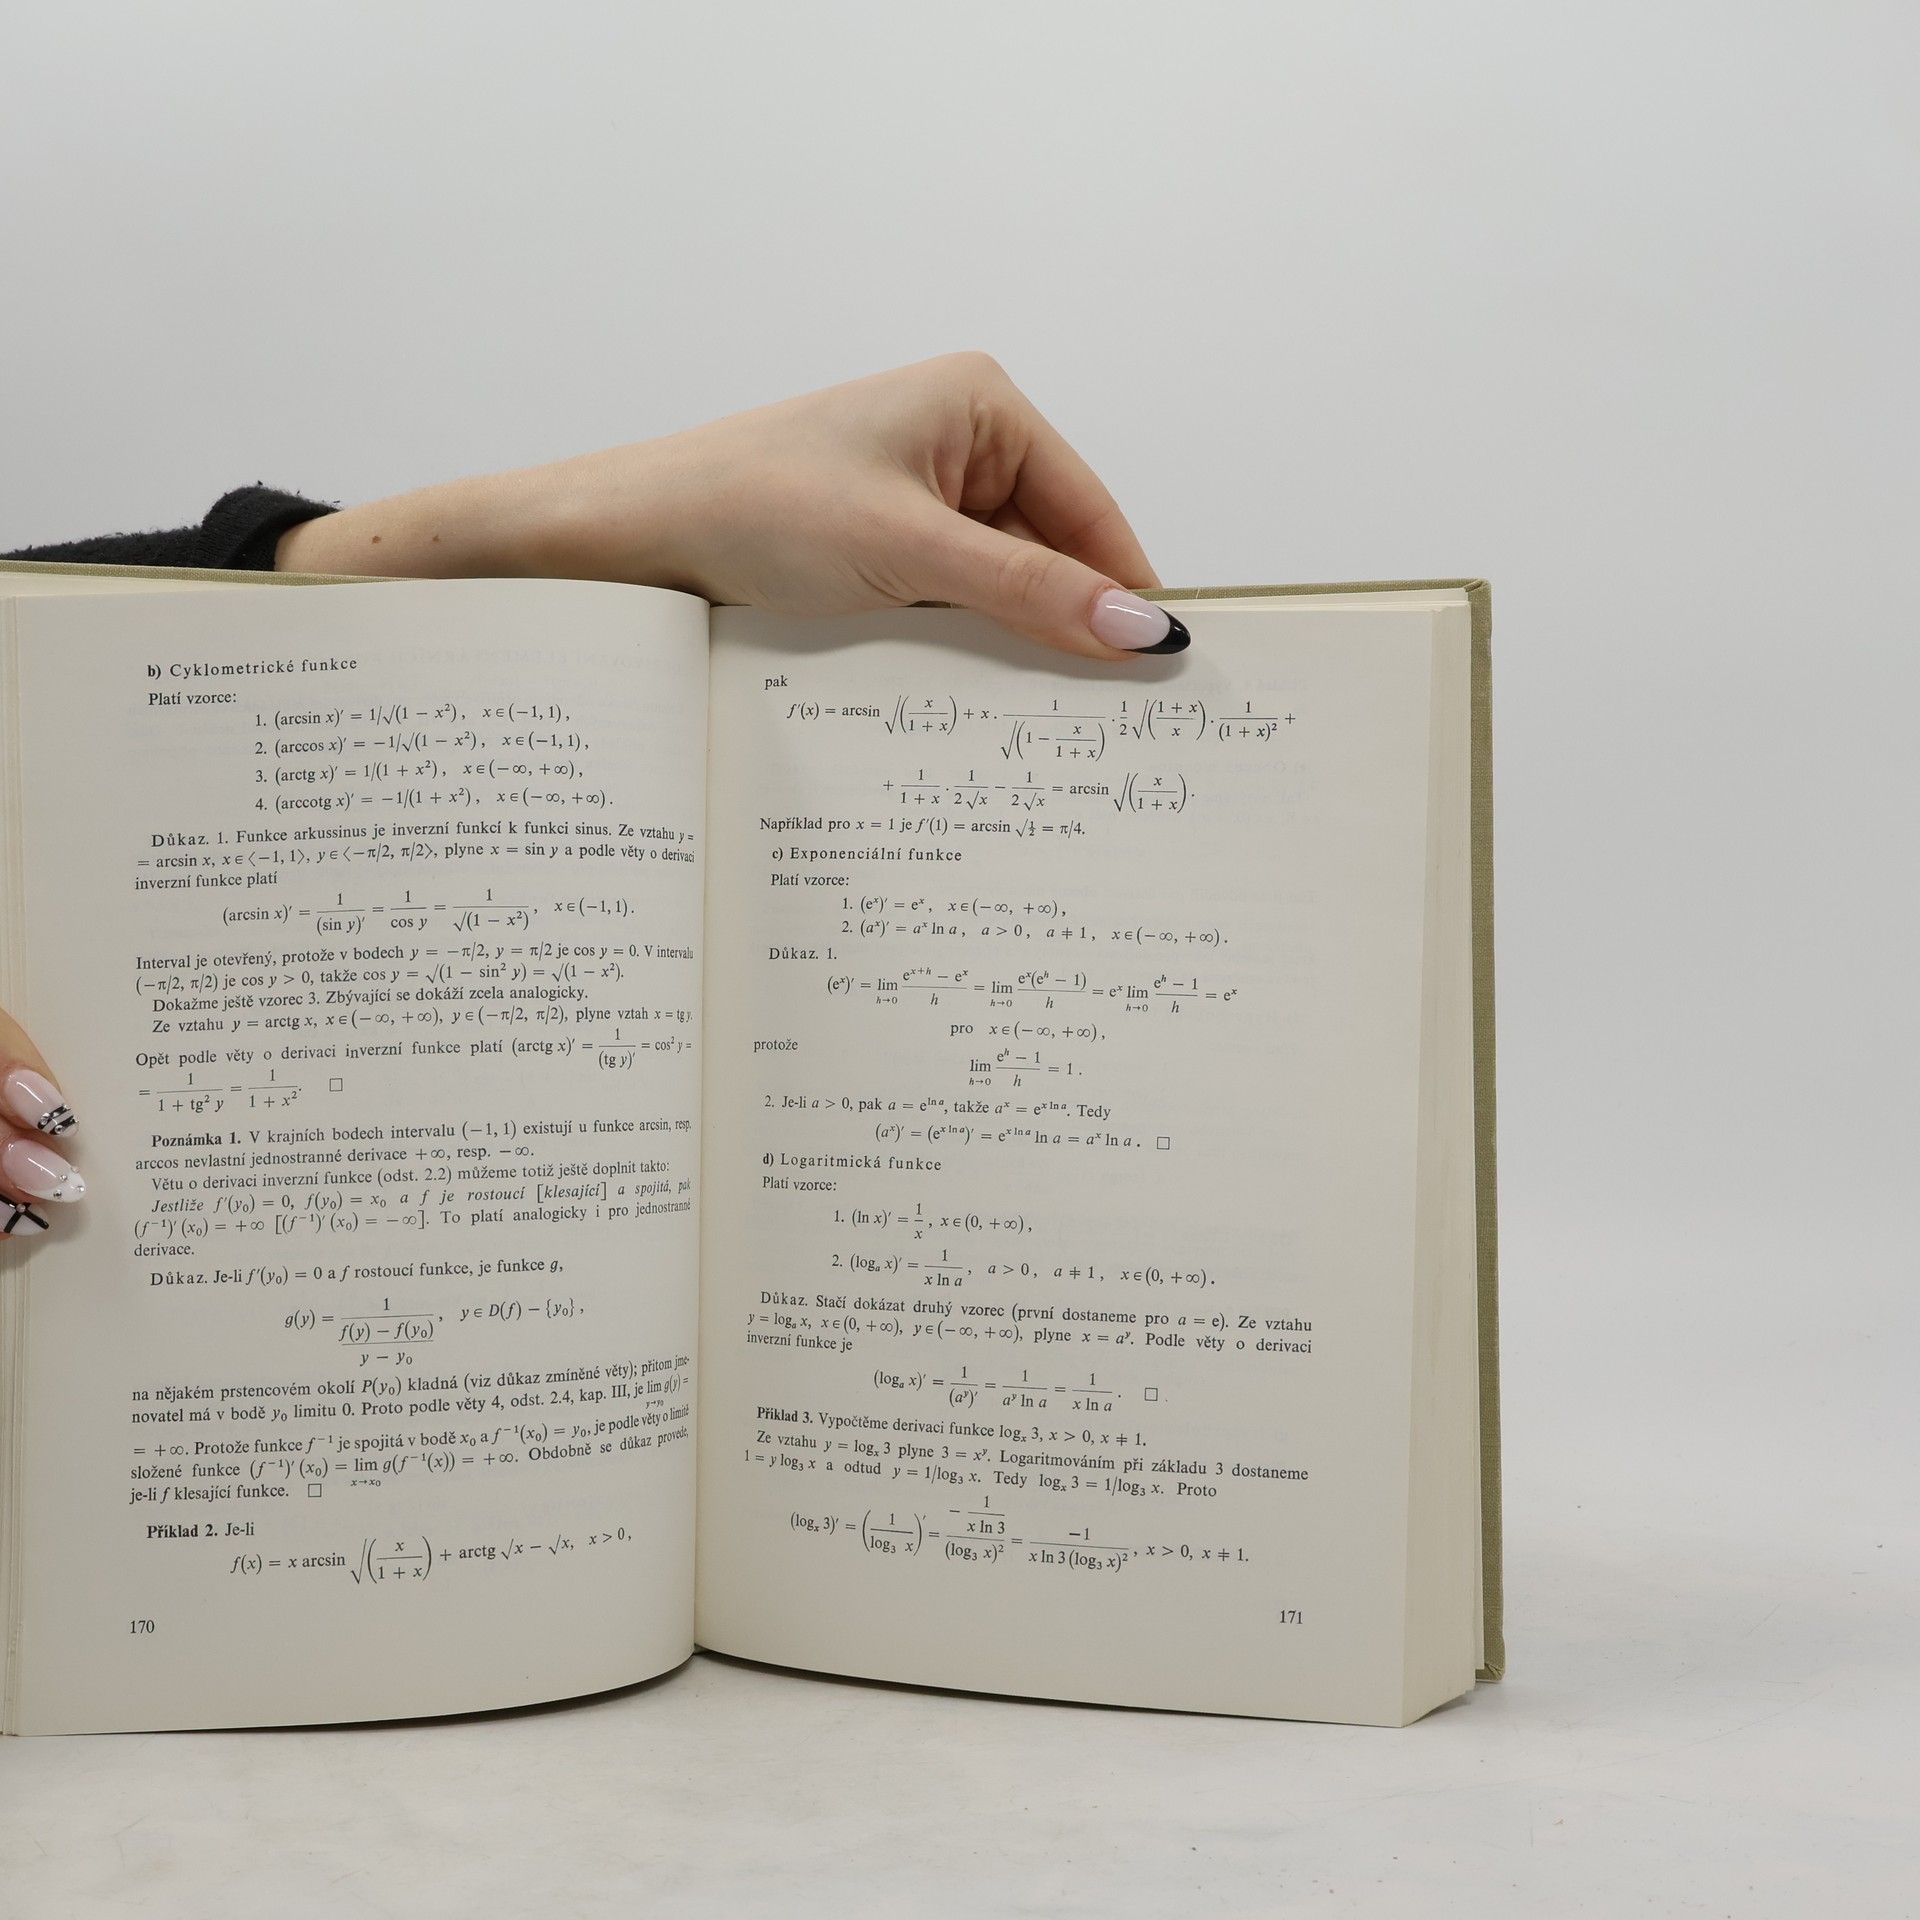 b) Cyklometrické funkce
Platí vzorce:
1. (arcsin x)′ = 1/√(1 − x²), x ∈ (−1, 1),
2. (arccos x)′ = −1/√(1 − x²), x ∈ (−1, 1),
3. (arctg x)′ = 1/(1 + x²), x ∈ (−∞, +∞),
4. (arccotg x)′ = −1/(1 + x²), x ∈ (−∞, +∞).
Důkaz. 1. Funkce arkussinus je inverzní funkcí k funkci sinus. Ze vztahu y =
= arcsin x, x ∈ ⟨−1, 1⟩, y ∈ ⟨−π/2, π/2⟩, plyne x = sin y a podle věty o derivaci
inverzní funkce platí
(arcsin x)′ = 1/(sin y)′ = 1/cos y = 1/√(1 − x²), x ∈ (−1, 1).
Interval je otevřený, protože v bodech y = −π/2, y = π/2 je cos y = 0. V intervalu
(−π/2, π/2) je cos y > 0, takže cos y = √(1 − sin² y) = √(1 − x²).
Dokažme ještě vzorec 3. Zbývající se dokáží zcela analogicky.
Ze vztahu y = arctg x, x ∈ (−∞, +∞), y ∈ (−π/2, π/2), plyne vztah x = tg y.
Opět podle věty o derivaci inverzní funkce platí (arctg x)′ = 1/(tg y)′ = cos² y =
= 1/(1 + tg² y) = 1/(1 + x²). □
Poznámka 1. V krajních bodech intervalu (−1, 1) existují u funkce arcsin, resp.
arccos nevlastní jednostranné derivace +∞, resp. −∞.
Větu o derivaci inverzní funkce (odst. 2.2) můžeme totiž ještě doplnit takto:
Jestliže f′(y₀) = 0, f(y₀) = x₀ a f je rostoucí [klesající] a spojitá, pak
(f⁻¹)′ (x₀) = +∞ [(f⁻¹)′ (x₀) = −∞]. To platí analogicky i pro jednostranné
derivace.
Důkaz. Je-li f′(y₀) = 0 a f rostoucí funkce, je funkce g,
g(y) = 1/((f(y) − f(y₀))/(y − y₀)), y ∈ D(f) − {y₀},
na nějakém prstencovém okolí P(y₀) kladná (viz důkaz zmíněné věty); přitom jme-
novatel má v bodě y₀ limitu 0. Proto podle věty 4, odst. 2.4, kap. III, je lim_{y→y₀} g(y) =
= +∞. Protože funkce f⁻¹ je spojitá v bodě x₀ a f⁻¹(x₀) = y₀, je podle věty o limitě
složené funkce (f⁻¹)′ (x₀) = lim_{x→x₀} g(f⁻¹(x)) = +∞. Obdobně se důkaz provede,
je-li f klesající funkce. □
Příklad 2. Je-li
f(x) = x arcsin √(x/(1 + x)) + arctg √x − √x, x > 0,
170
pak
f′(x) = arcsin √(x/(1 + x)) + x . 1/√(1 − x/(1 + x)) . 1/2 √((1 + x)/x) . 1/(1 + x)² +
+ 1/(1 + x) . 1/(2√x) − 1/(2√x) = arcsin √(x/(1 + x)).
Například pro x = 1 je f′(1) = arcsin √½ = π/4.
c) Exponenciální funkce
Platí vzorce:
1. (eˣ)′ = eˣ, x ∈ (−∞, +∞),
2. (aˣ)′ = aˣ ln a, a > 0, a ≠ 1, x ∈ (−∞, +∞).
Důkaz. 1.
(eˣ)′ = lim_{h→0} (eˣ⁺ʰ − eˣ)/h = lim_{h→0} eˣ(eʰ − 1)/h = eˣ lim_{h→0} (eʰ − 1)/h = eˣ
pro x ∈ (−∞, +∞),
protože
lim_{h→0} (eʰ − 1)/h = 1.
2. Je-li a > 0, pak a = e^{ln a}, takže aˣ = e^{x ln a}. Tedy
(aˣ)′ = (e^{x ln a})′ = e^{x ln a} ln a = aˣ ln a. □
d) Logaritmická funkce
Platí vzorce:
1. (ln x)′ = 1/x, x ∈ (0, +∞),
2. (logₐ x)′ = 1/(x ln a), a > 0, a ≠ 1, x ∈ (0, +∞).
Důkaz. Stačí dokázat druhý vzorec (první dostaneme pro a = e). Ze vztahu
y = logₐ x, x ∈ (0, +∞), y ∈ (−∞, +∞), plyne x = aʸ. Podle věty o derivaci
inverzní funkce je
(logₐ x)′ = 1/(aʸ)′ = 1/(aʸ ln a) = 1/(x ln a). □
Příklad 3. Vypočtěme derivaci funkce logₓ 3, x > 0, x ≠ 1.
Ze vztahu y = logₓ 3 plyne 3 = xʸ. Logaritmováním při základu 3 dostaneme
1 = y log₃ x a odtud y = 1/log₃ x. Tedy logₓ 3 = 1/log₃ x. Proto
(logₓ 3)′ = (1/log₃ x)′ = (−1/(x ln 3))/(log₃ x)² = −1/(x ln 3 (log₃ x)²), x > 0, x ≠ 1.
171